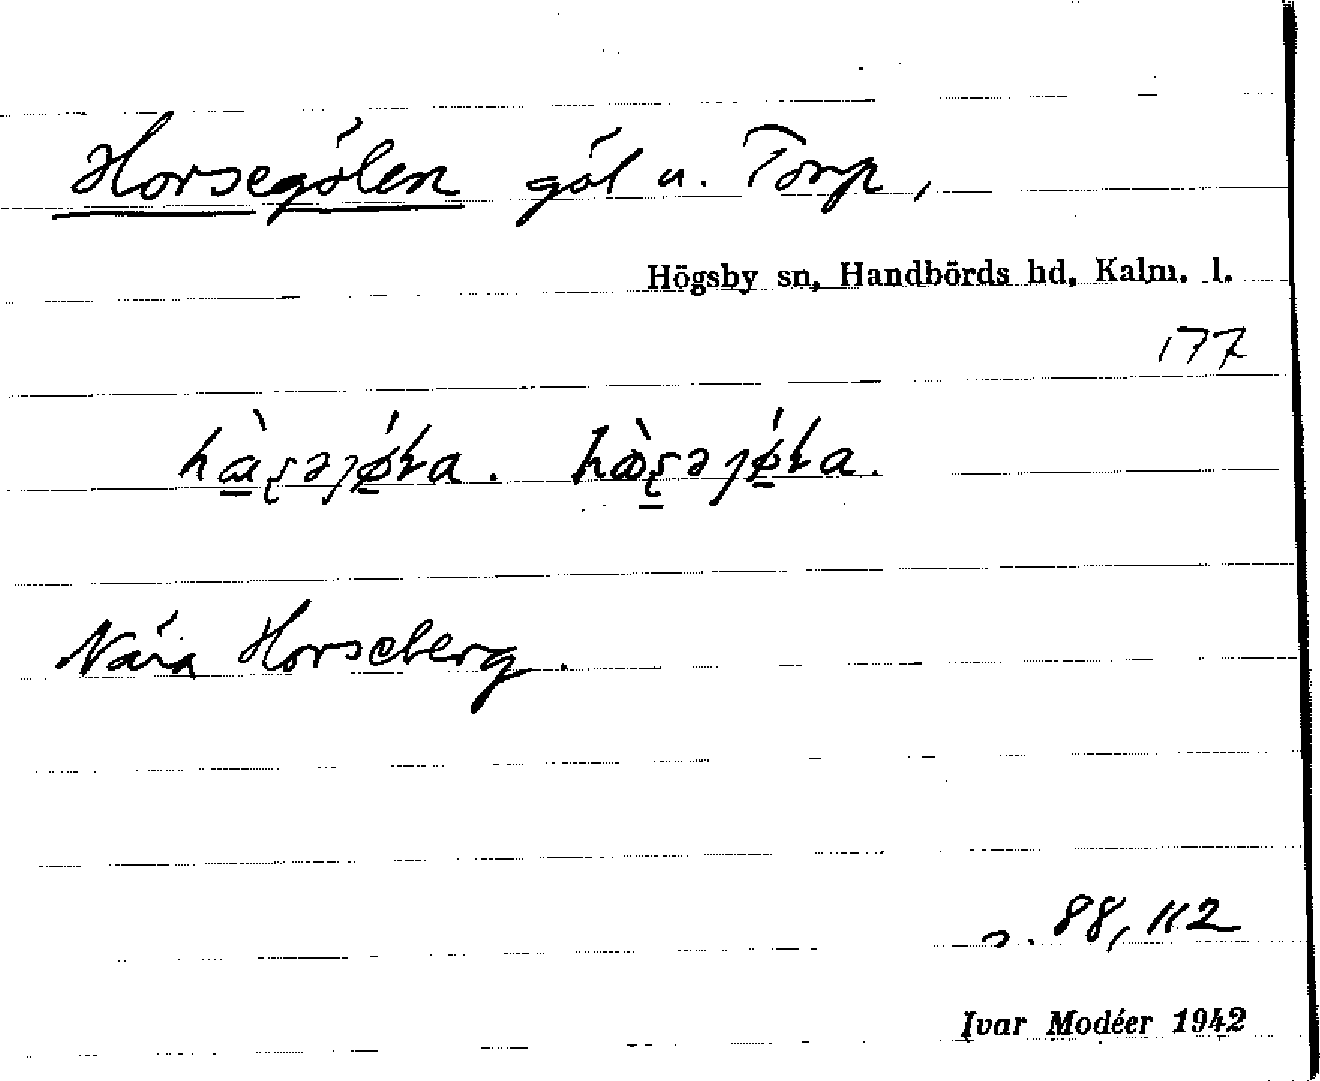 Horsegölen göl u. Torp,
Högsby sn, Handbörds hd, Kalm. l.
177
Nära Horseberg.
s. 88, 112
Ivar Modéer 1942